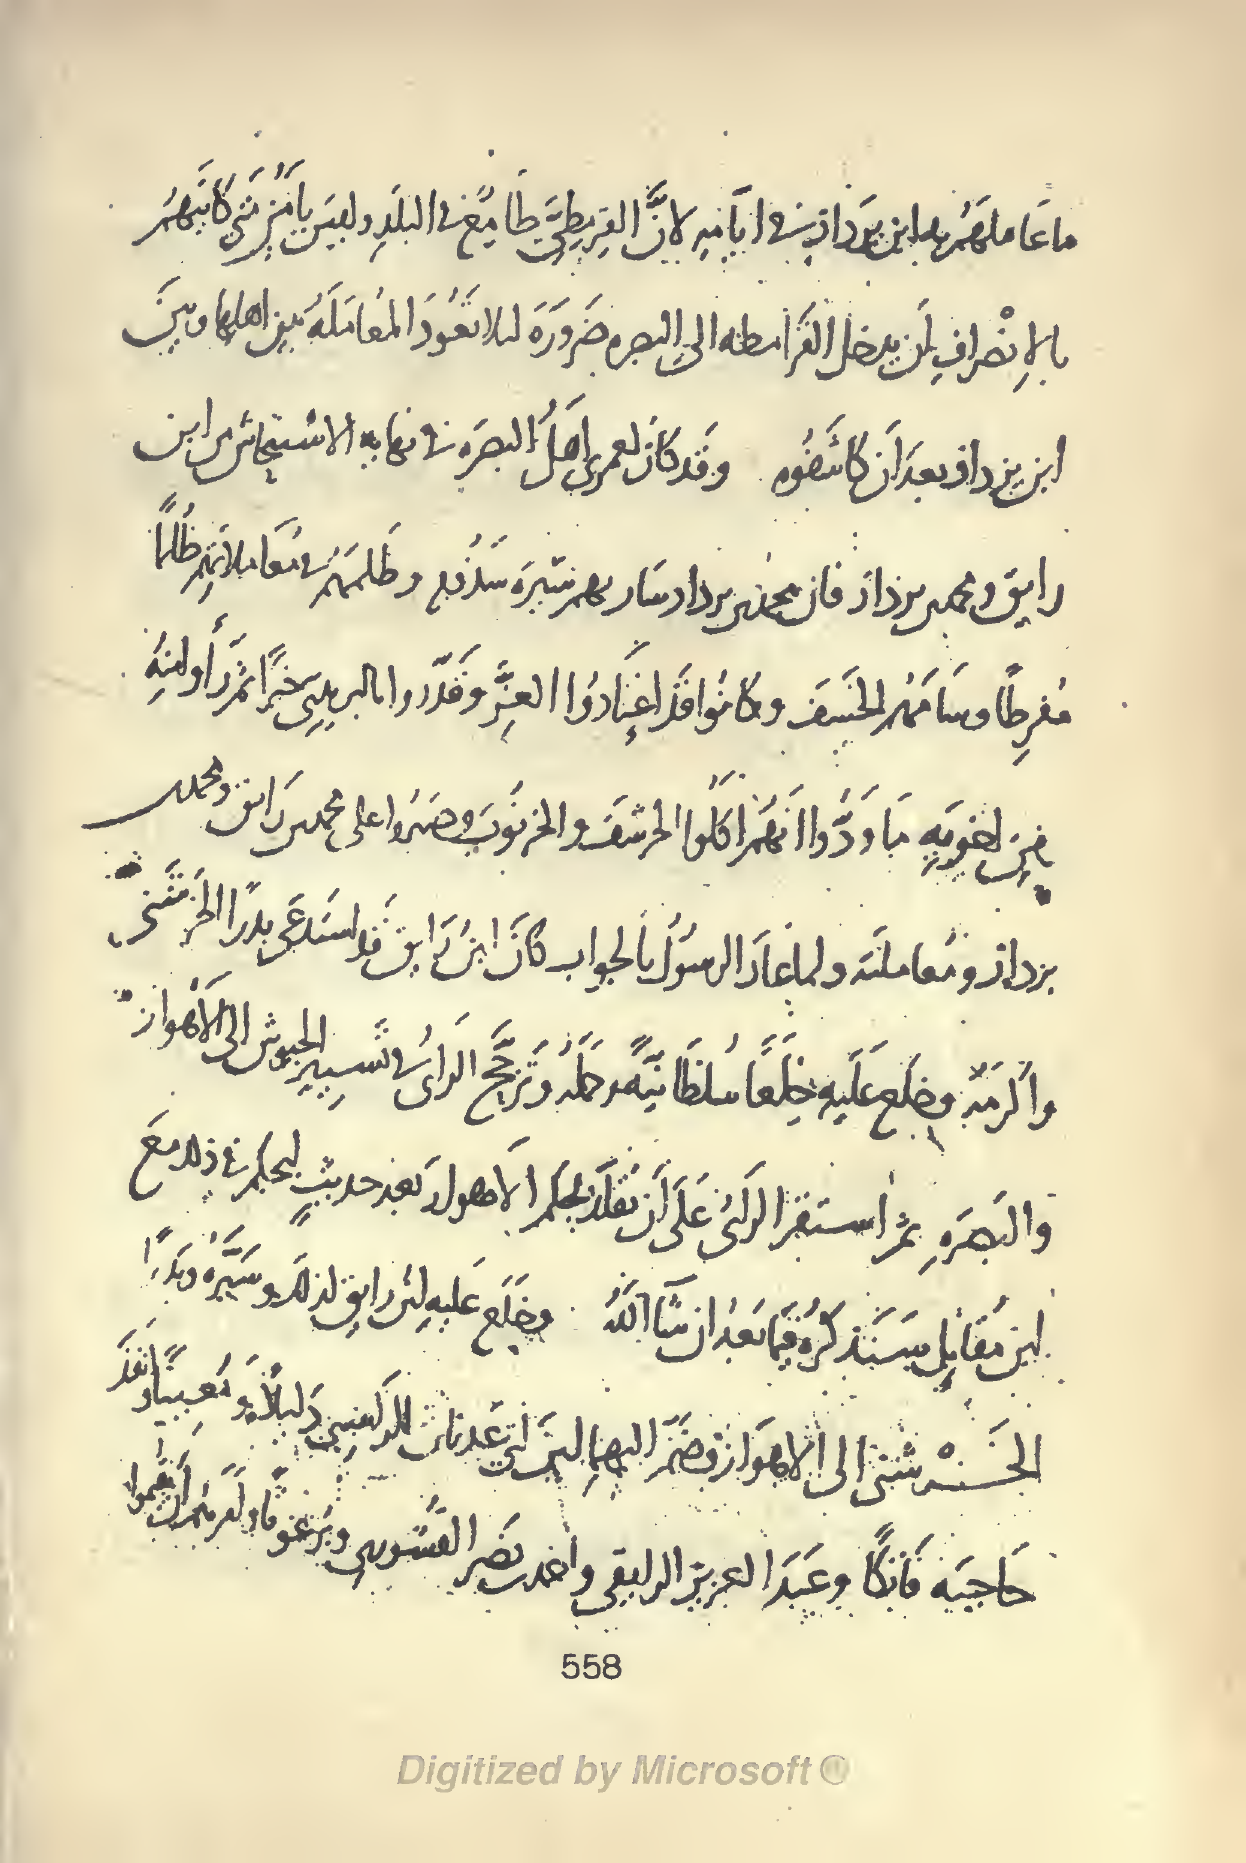 ما عاملهم به ابن يزداذ في ايامه لانَّ القرمطيَّ طامع في البلد وليس يامن متى كاتبهم
بالإنصراف ان يدخل القرامطه الى البصره ضَرورَةً لئلا تعُودَ المعُامَلَهُ بين اهلها وبين
ابن يزداذ بعدَ اَن كاشَفُوه وقد كانَ لعمري اهَلُ البصرَه في نهايه الاستيحاش من ابن
رايق ومحمد بن يزداذ فان محمد بن يزداذ سار بهم سيرَه سَدُوم وظلمهَم في مُعاملاتهِم ظُلمًا
مُفرِطًا وسَامَهُم الخَسفَ وكانُوا قَد اعْتادُوا العِزَّ وقَدَّروا بالبريدِيّ خيرًا ثم رَأَوا منِهُ
ومن اخويَهِ مَا وَدُّوا انهَّم اكلوا الحرشَفَ والخرنُوبَ وصَبَروا على محمد بن رَايق ومحمد بن
يزداذ ومُعاملته ولما عادَ الرسوُلُ بالجواب كانَ ابن رَايق قد استَدعَى بدرًا الخرشَنيِ
واكرمَهُ وخلَع عَلَيهِ خِلَعًا سُلطَانيَّةً وحَمَلهُ وتَرجَّحَ الرائُ في تَسيير الجيوش الى الاَهواز
والبَصرَهِ ثم استقرا الرائُ عَلَى اَن تقلّد بجكم الاَهواز بَعد حديثٍ لبجكم في ذلك معَ
ابن مُقاتِلٍ سَنَذكُرهُ فيما بَعدُ ان شَا اَللهُ وخلَع عَليهِ ابن رايق لذلك وسَيَّرهُ وبَدرًا
الخَرشَني الى الاَهوَاز وضَمَّ اليهما ابن ابي عَدنان الراسبي دَليلًا ومُعيناً وانفذَ
حَاجبَه فَاتِكًا وعَبدَ العزيز الرايقي واحمد بن نَصر القشُوري وبرغوثًا وامرهم ان يقيموا
558
Digitized by Microsoft®